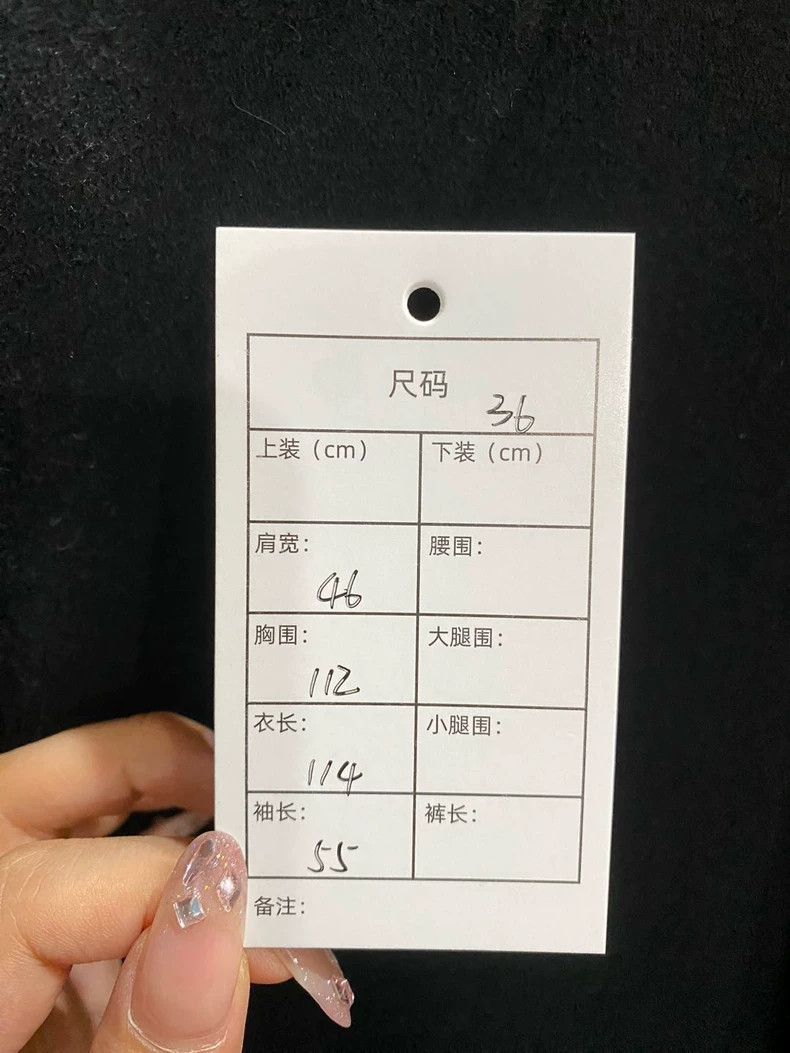 尺码 36
上装（cm） 下装（cm）
肩宽： 46 腰围：
胸围： 112 大腿围：
衣长： 114 小腿围：
袖长： 55 裤长：
备注：